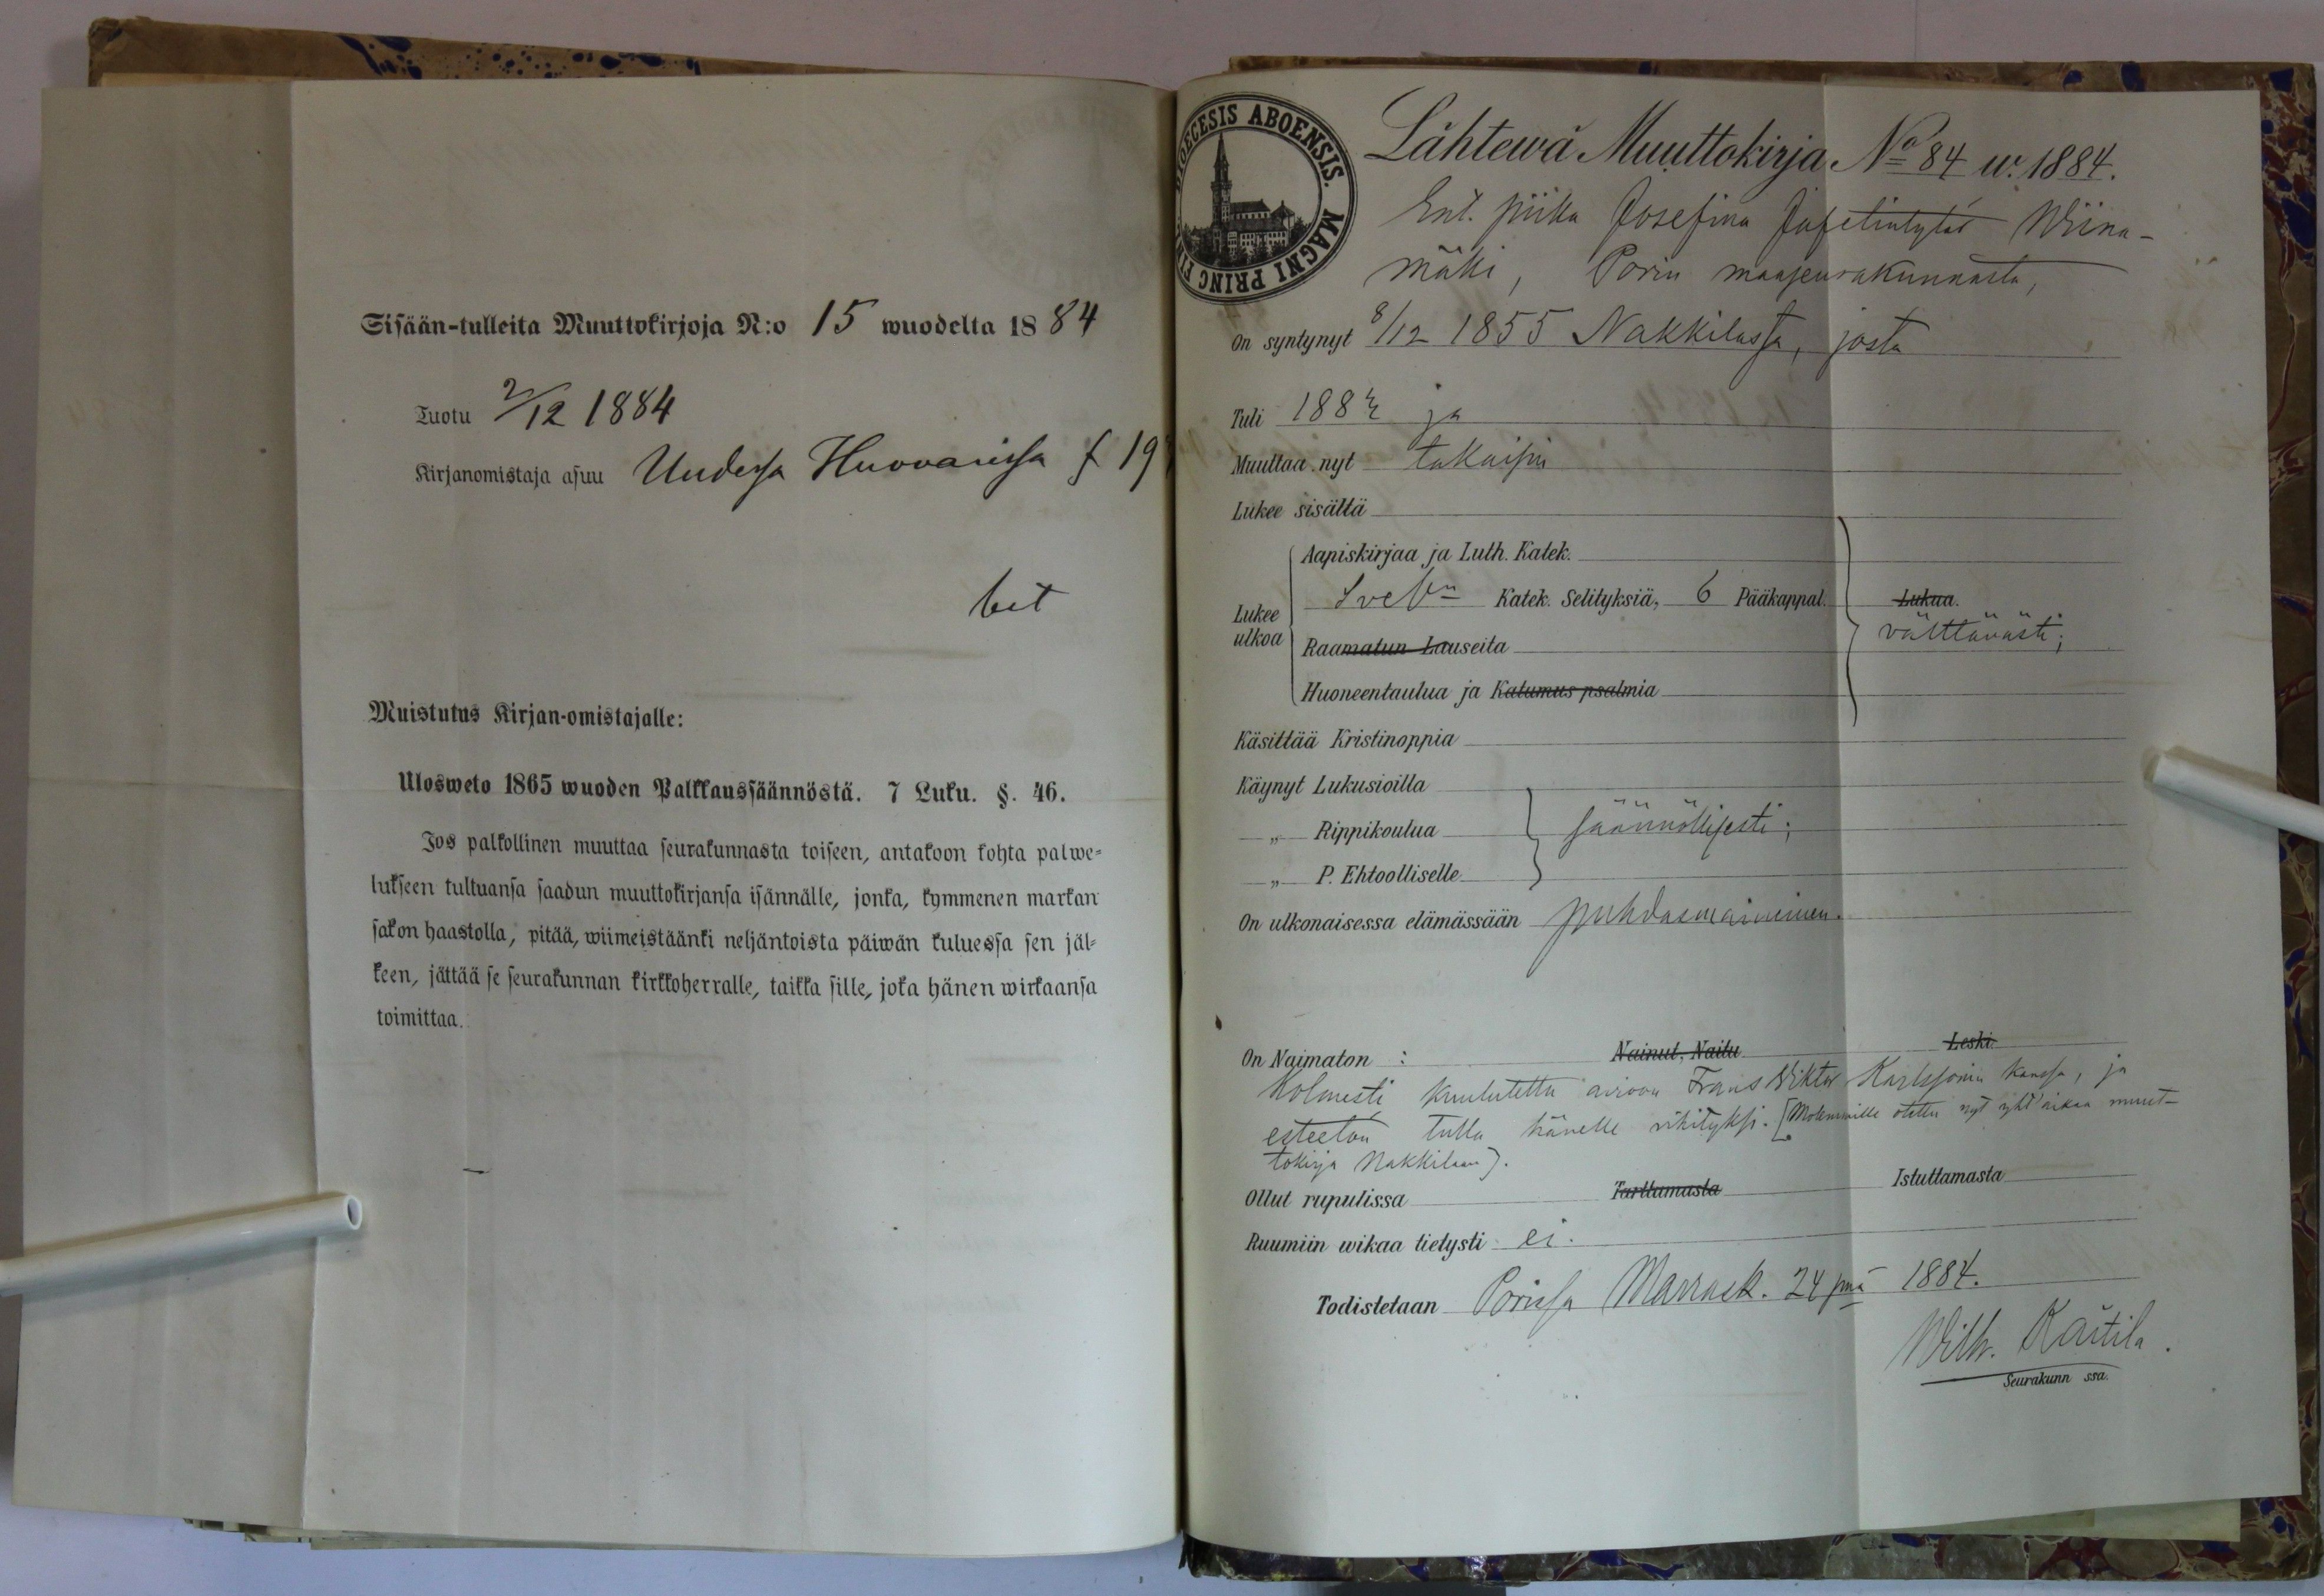 Sisään-tulleita Muuttokirjoja N:o 15 wuodelta 1884
Tuotu 2/12 1884
Kirjanomistaja asuu Uudessa Huovarissa f 19
bet
Muistutus Kirjan-omistajalle:
Ulosweto 1865 wuoden Palkkaussäännöstä. 7 Luku. §. 46.
Jos palkollinen muuttaa seurakunnasta toiseen, antakoon kohta palwe-
lukseen tultuansa saadun muuttokirjansa isännälle, jonka, kymmenen markan
sakon haastolla, pitää, wiimeistäänki neljäntoista päiwän kuluessa sen jäl-
keen, jättää se seurakunnan kirkkoherralle, taikka sille, joka hänen wirkaansa
toimittaa.
DIOECESIS ABOENSIS. MAGNI PRINC FIN
Lähtewä Muuttokirja No 84 w. 1884.
Ent. piika Josefina Jafetintytär Wiina-
mäki, Porin maaseurakunnasta,
On syntynyt 8/12 1855 Nakkilassa, josta
Tuli 1882 ja
Muuttaa nyt takaisin
Lukee sisältä
Aapiskirjaa ja Luth. Katek.
Lukee ulkoa
Sveb:n Katek. Selityksiä, 6 Pääkappal. Lukua.
välttävästi;
Raamatun Lauseita
Huoneentaulua ja Katumus psalmia
Käsittää Kristinoppia
Käynyt Lukusioilla
„ Rippikoulua säännöllisesti;
„ P. Ehtoolliselle
On ulkonaisessa elämässään puhdasmaineinen.
On Naimaton : Nainut, Naitu Leski.
Kolmesti kuulutettu avioon Frans Wiktor Karlssonin kanssa, ja
esteetön tulla hänelle vihityksi. [Molemmille otettu nyt yht'aikaa muut-
tokirja Nakkilaan].
Ollut rupulissa Tarttamasta Istuttamasta
Ruumiin wikaa tietysti ei.
Todistetaan Porissa Marrask. 24 pnä 1884.
Wilh. Kaitila.
Seurakunn ssa.